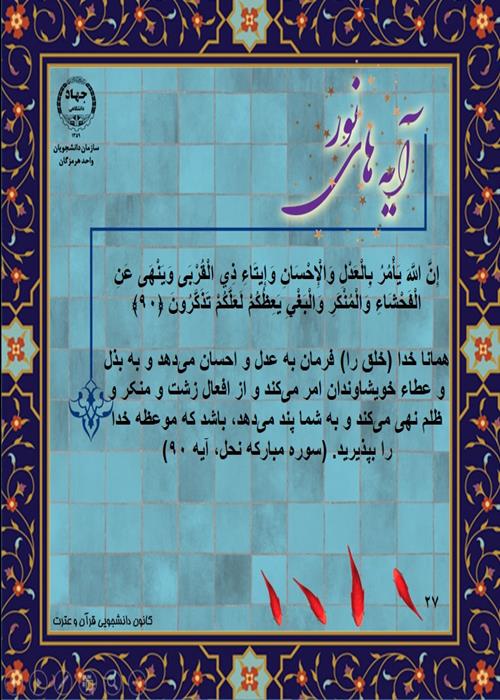 آیه های نور
جهاد
دانشگاهی
۱۳۵۹
سازمان دانشجویان
واحد هرمزگان
إنَّ اللّهَ يَأْمُرُ بِالْعَدْلِ وَالْإِحْسَانِ وَإِيتَاءِ ذِي الْقُرْبَى وَيَنْهَى عَنِ
الْفَحْشَاءِ وَالْمُنْكَرِ وَالْبَغْيِ يَعِظُكُمْ لَعَلَّكُمْ تَذَكَّرُونَ ﴿۹۰﴾
همانا خدا (خلق را) فرمان به عدل و احسان می‌دهد و به بذل
و عطاء خویشاوندان امر می‌کند و از افعال زشت و منکر و
ظلم نهی می‌کند و به شما پند می‌دهد، باشد که موعظه خدا
را بپذیرید. (سوره مبارکه نحل، آیه ۹۰)
۲۷
کانون دانشجویی قرآن و عترت